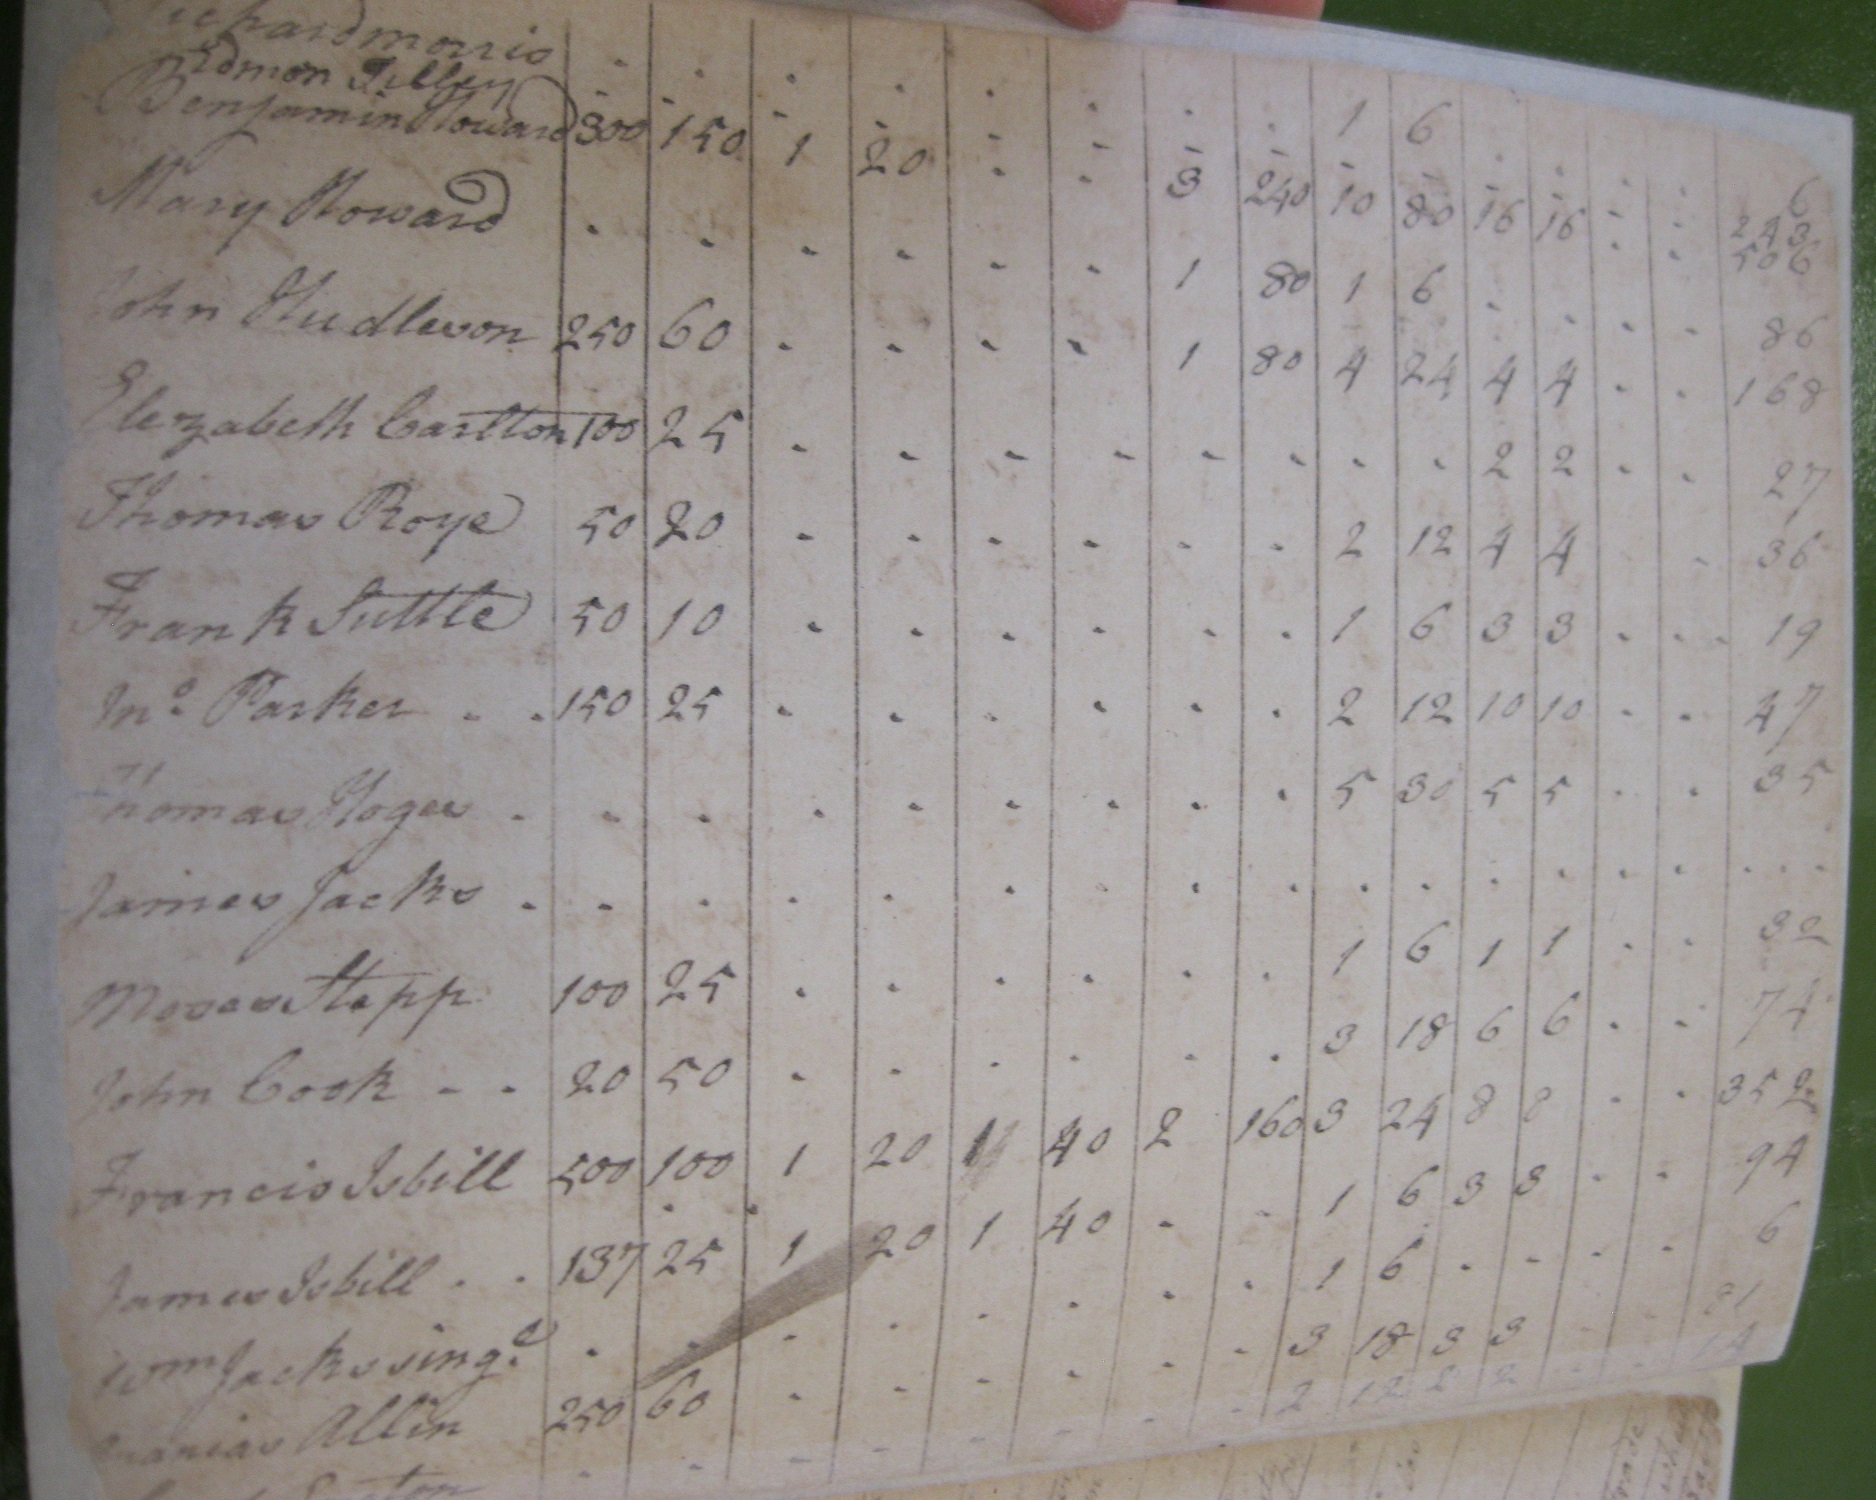 Richard morris . . . . . . . . 1 6 . . . . 6
Edmon Tilley - - - - - - - - - - - - - - 243
Benjamin Howard 300 150 1 20 - - 3 240 10 80 16 16 - - 506
Mary Howard . . . . . . 1 80 1 6 . . . . 86
John Hudleson 250 60 . . . . 1 80 4 24 4 4 . . 168
Elezabeth Carlton 100 25 . . . . . . . . 2 2 . . 27
Thomas Roye 50 20 . . . . . . 2 12 4 4 . . 36
Frank Suttle 50 10 . . . . . . 1 6 3 3 . . 19
Jno Parker . . 150 25 . . . . . . 2 12 10 10 . . 47
Thomas Hoges . . . . . . . . . 5 30 5 5 . . 35
James Jacks . . . . . . . . . . . . . . . . . .
Moses Stepp 100 25 . . . . . . 1 6 1 1 . . 32
John Cook - - 20 50 . . . . . . 3 18 6 6 . . 74
Francis Isbill 500 100 1 20 1 40 2 160 3 24 8 8 . . 352
James Isbill . . 137 25 1 20 1 40 . . 1 6 3 3 . . 94
Wm Jacks sing.e . . . . . . . . 1 6 . . . . 6
Ananias Allin 250 60 . . . . . . 3 18 3 3 . . 81
- - - - - - - - 2 12 2 2 - - 14